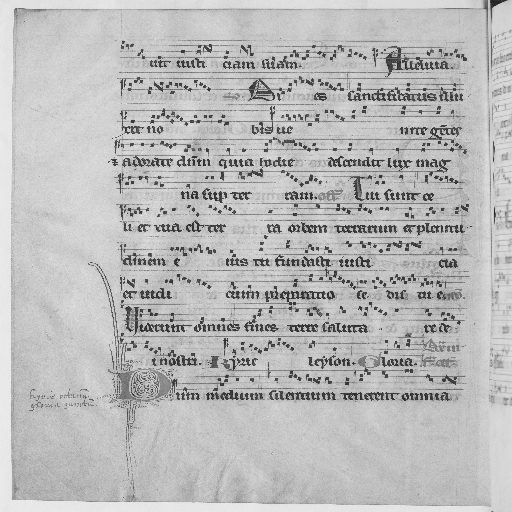 uit iusti ciam suam. Alleluia.
Di es sanctificatus illu
xit no bis ue nite gētes
adorate dn̄m quia hodie descendit lux mag
na sup ter ram. off. Tui sunt ce
li et tua est ter ra orbem terrarum et plenitu
dinem e ius tu fundasti iusti cia
et iudi cium preparatio se dis tu e
Uiderunt omnes fines terre saluta re de
i nostri. Kyrie leyson. Gloria.
Dum medium silentium tenerent omnia